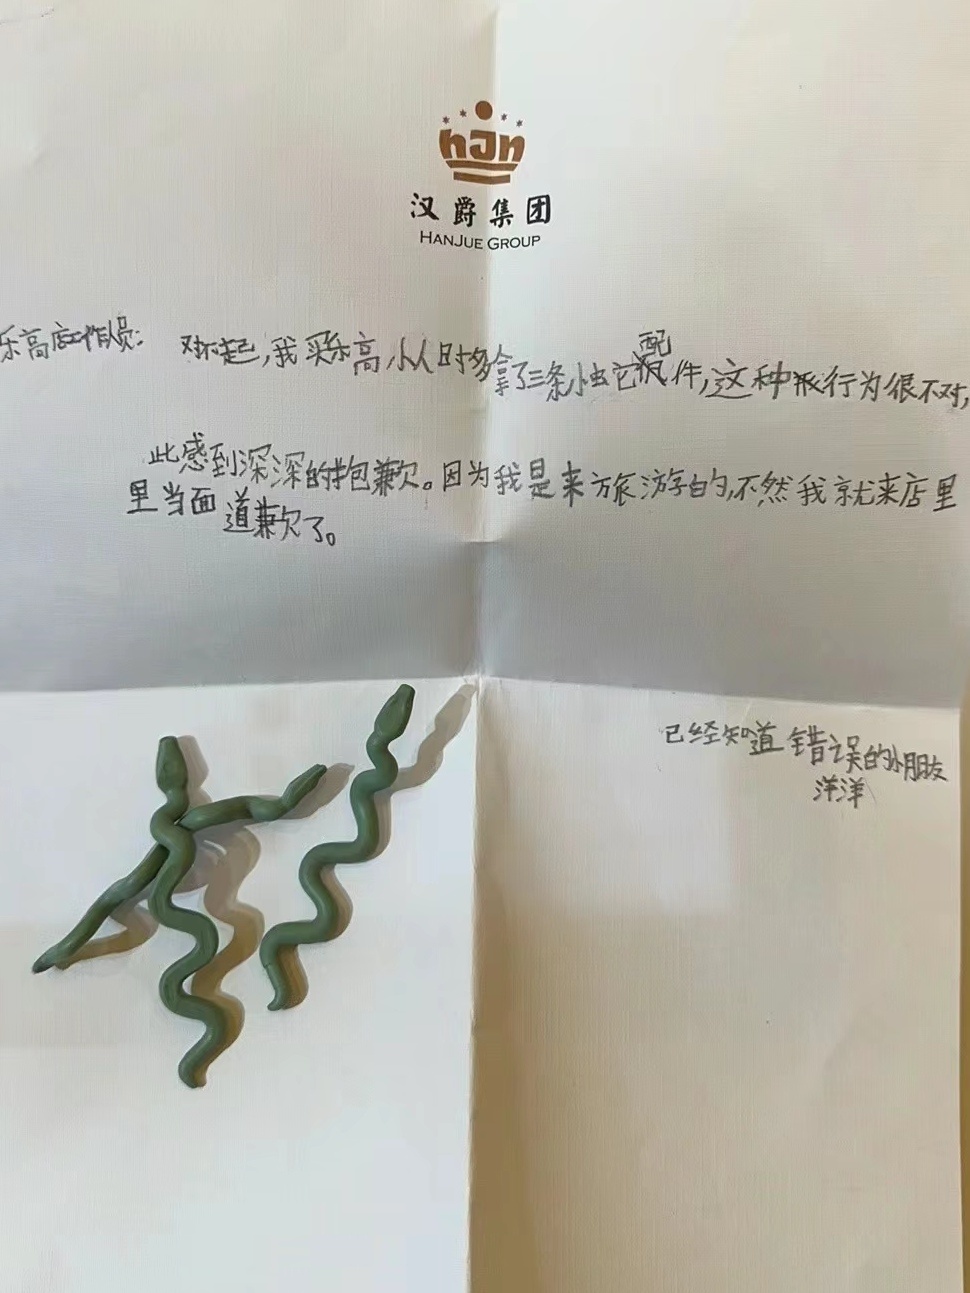 hJn
汉爵集团
HANJUE GROUP
乐高店工作人员: 对不起,我买乐高小人时多拿了三条小蛇配件,这种行为很不对,
此感到深深的抱歉。因为我是来旅游的,不然我就来店里
里当面道歉了。
已经知道错误的小朋友
洋洋